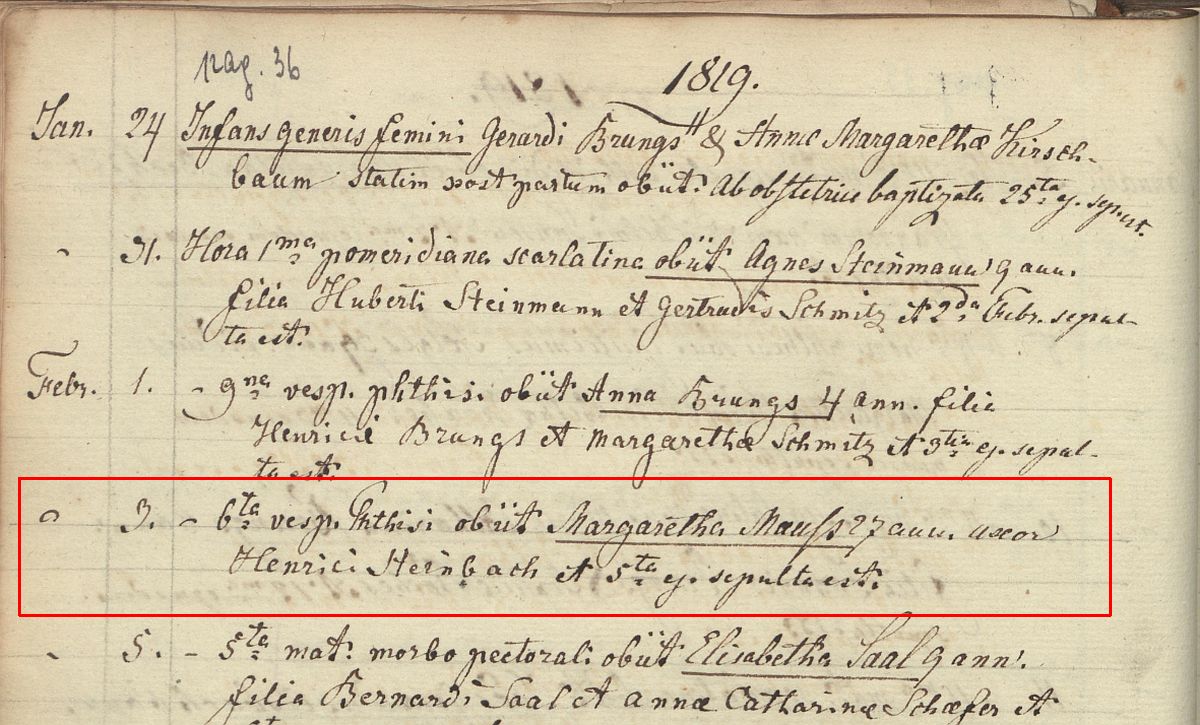 pag. 36
1819.
Jan. 24 Infans generis femini Gerardi Brungs & Annæ Margarethæ Kirsch-
baum statim post partum obiit. Ab obstetrice baptizata 25ta ej. sepult.
- 31. Hora 1ma pomeridiana scarlatina obiit Agnes Steinmann 9 ann.
filia Huberti Steinmann et Gertrudis Schmitz et 2da Febr. sepul-
ta est.
Febr. 1. - 9na vesp. phthisi obiit Anna Brungs 4 ann. filia
Henrici Brungs et Margarethæ Schmitz et 3tia ej. sepul-
ta est.
- 3. - 6ta vesp. Phthisi obiit Margaretha Mauss 27 ann. uxor
Henrici Steinbach et 5ta ej. sepulta est.
- 5. - 5ta mat. morbo pectorali obiit Elisabetha Saal 9 ann.
filia Bernardi Saal et annæ Catharinæ Schæfer et